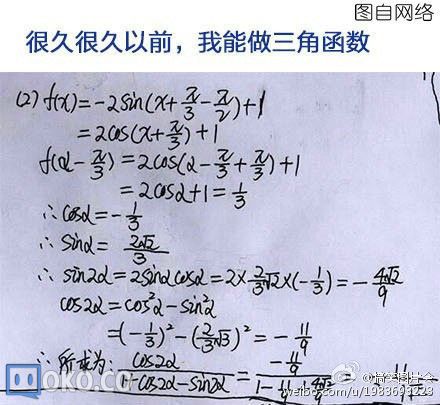 图自网络
很久很久以前，我能做三角函数
(2) f(x)=-2sin(x+π/3-π/2)+1
=2cos(x+π/3)+1
f(α-π/3)=2cos(α-π/3+π/3)+1
=2cosα+1=1/3
∴cosα=-1/3
∴sinα=2√2/3
∴sin2α=2sinαcosα=2×2/3√2×(-1/3)=-4√2/9
cos2α=cos²α-sin²α
=(-1/3)²-(2/3√3)²=-11/9
∴所求为: cos2α/cos2α-sin2α=-11/9
moko.cc
weibo.com/u/1983693223